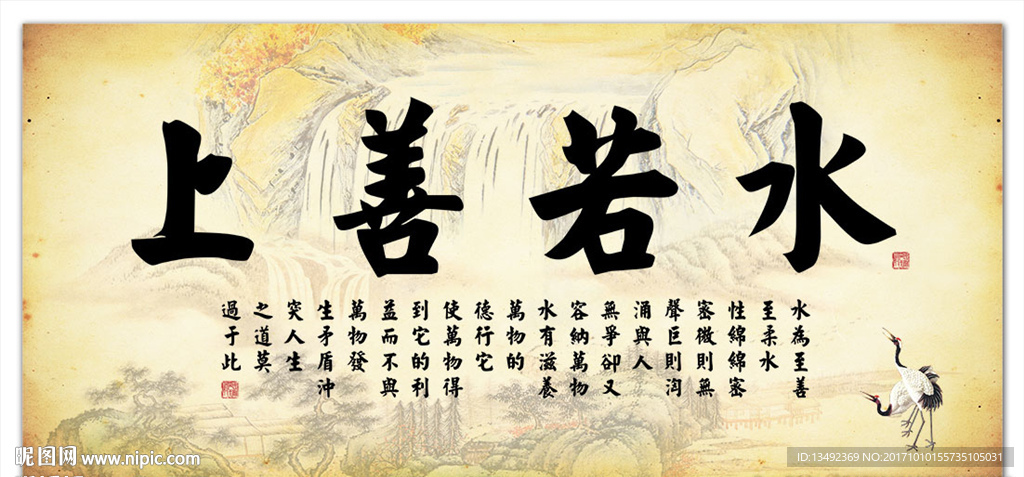 上善若水
水為至善
至柔水
性綿綿密
密微則無
聲巨則洶
涌與人
無爭卻又
容納萬物
水有滋養
萬物的
德行它
使萬物得
到它的利
益而不與
萬物發
生矛盾沖
突人生
之道莫
過于此
昵图网 www.nipic.com
ID:13492369 NO:20171010155735105031